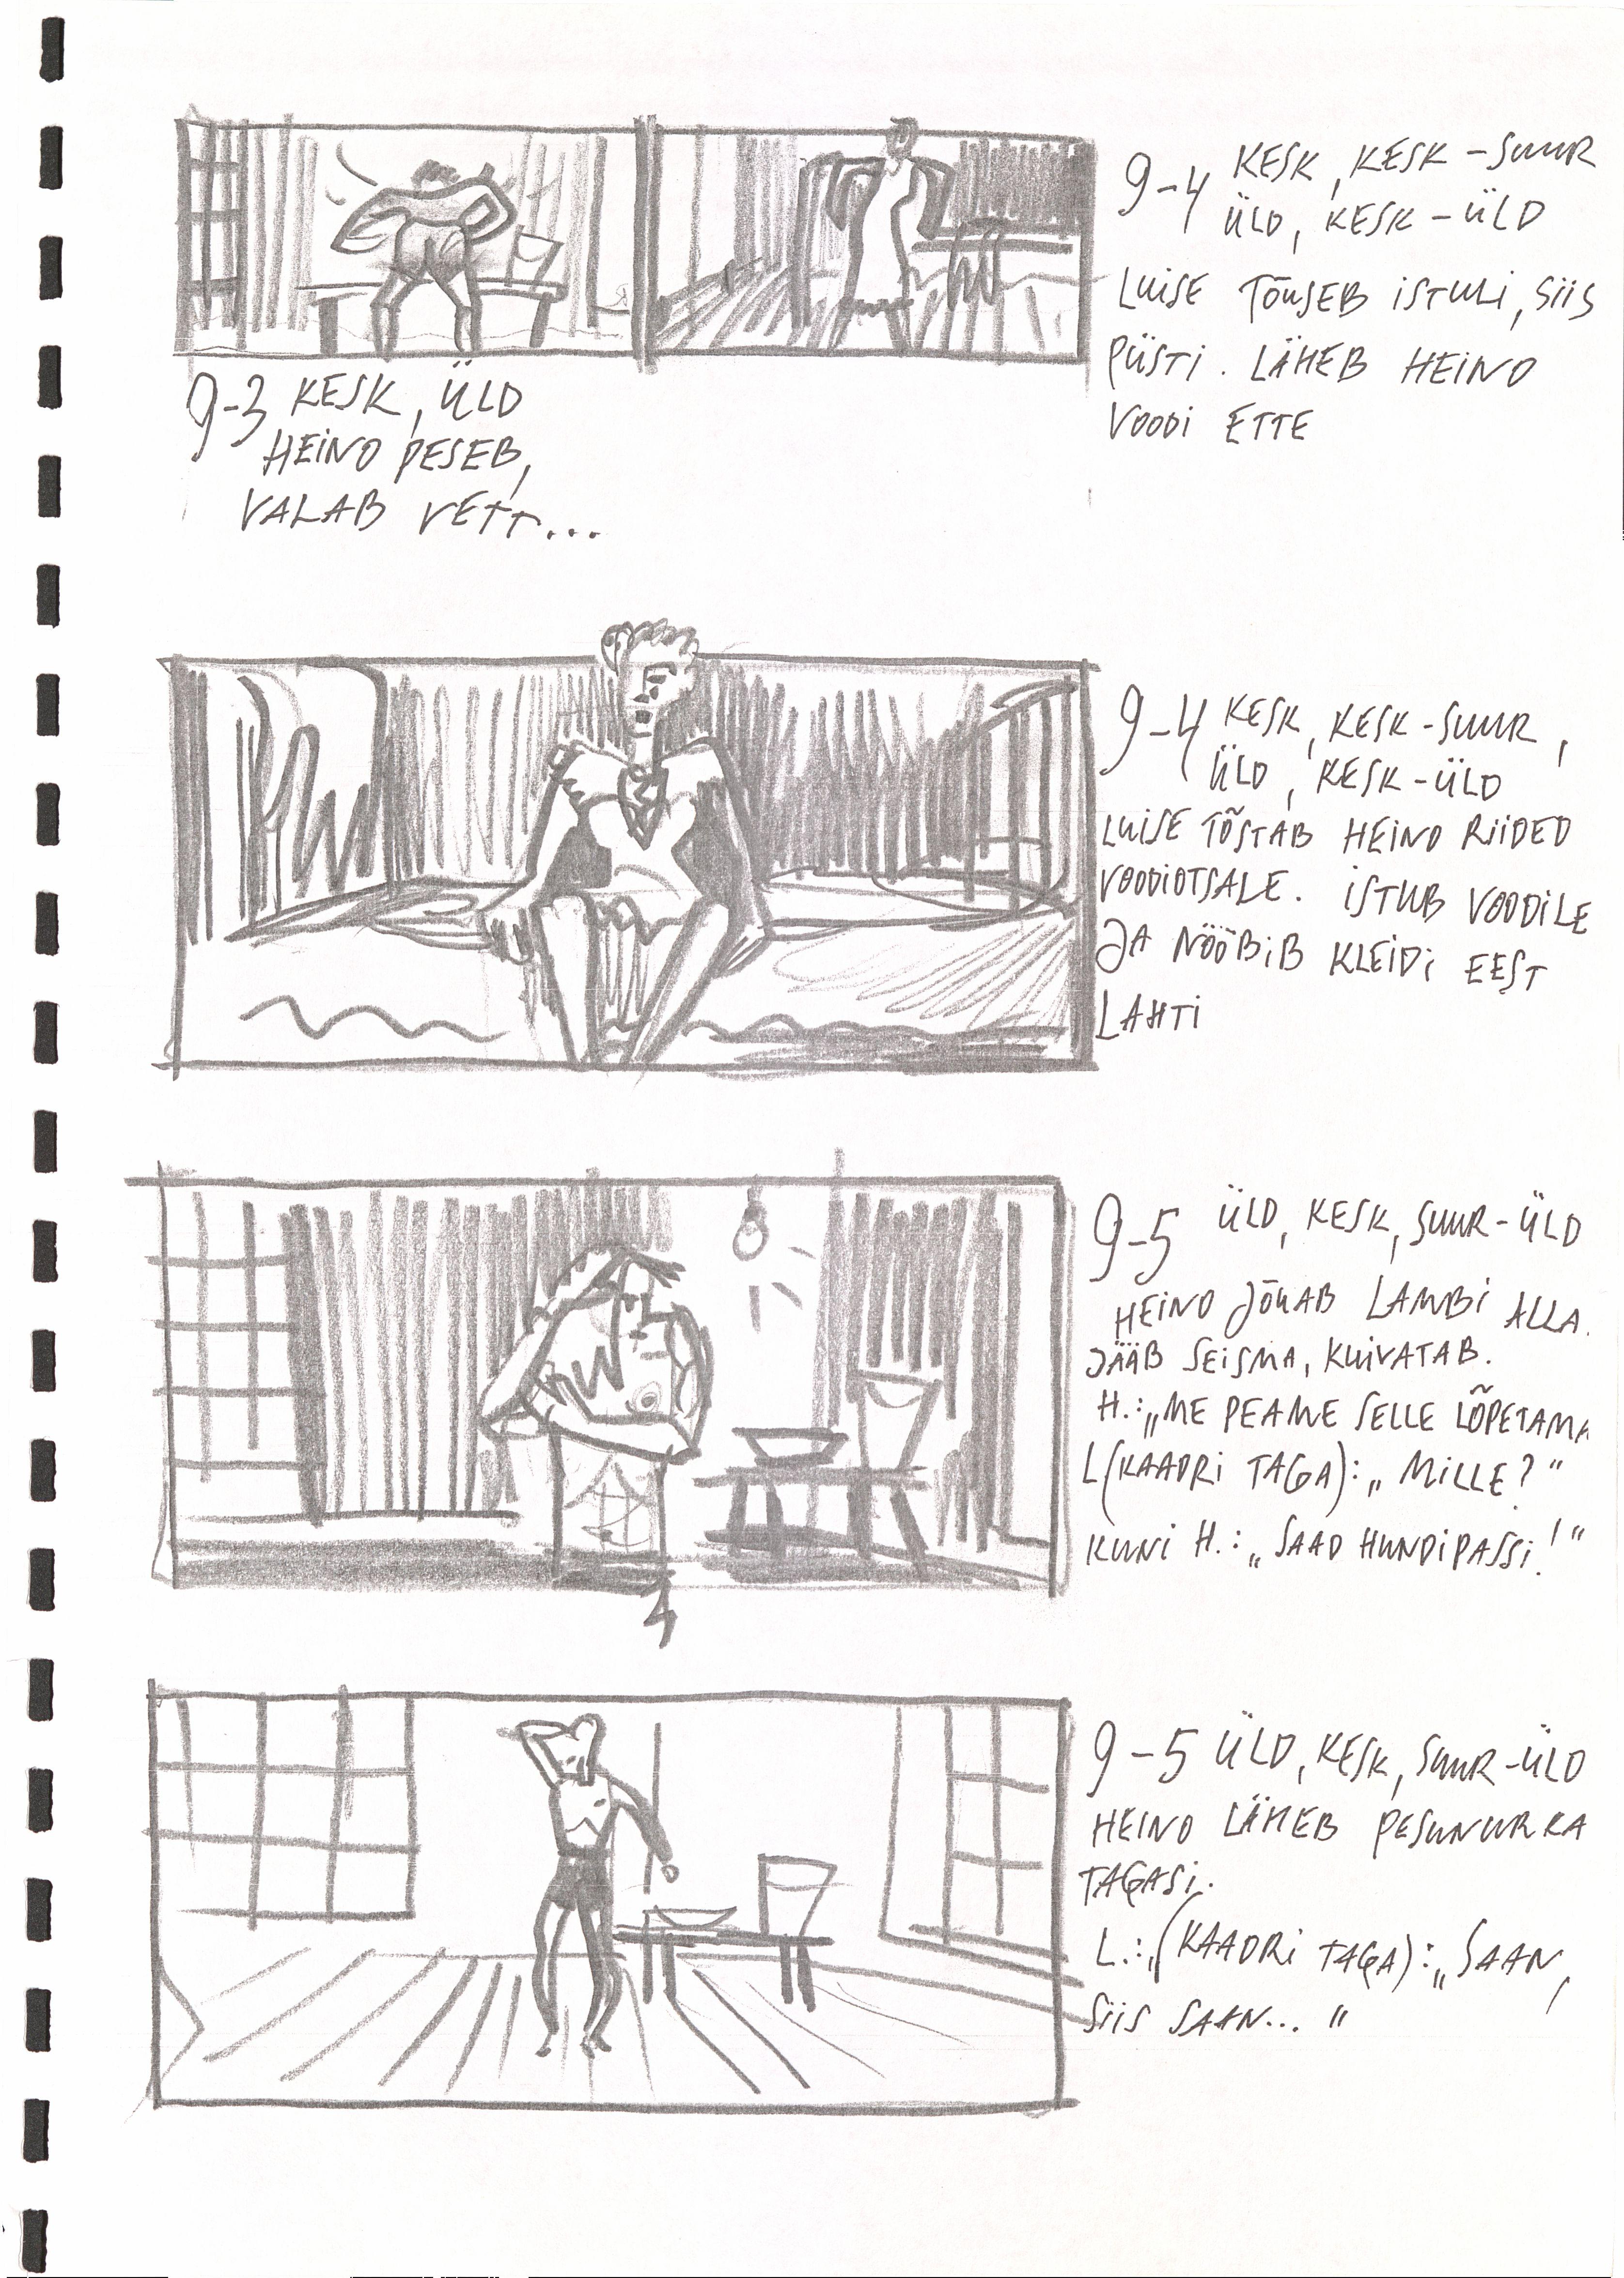 9-3 KESK, ÜLD
HEINO PESEB,
VALAB VETT...
9-4 KESK, KESK-SUUR
ÜLD, KESK-ÜLD
LUISE TÕUSEB ISTULI, SIIS
PÜSTI. LÄHEB HEINO
VOODI ETTE
9-4 KESK, KESK-SUUR,
ÜLD, KESK-ÜLD
LUISE TÕSTAB HEINO RIIDED
VOODIOTSALE. ISTUB VOODILE
JA NÖÖBIB KLEIDI EEST
LAHTI
9-5 ÜLD, KESK, SUUR-ÜLD
HEINO JÕUAB LAMBI ALLA.
JÄÄB SEISMA, KUIVATAB.
H.: „ME PEAME SELLE LÕPETAMA
L (KAADRI TAGA): „MILLE?"
KUNI H.: „SAAD HUNDIPASSI!"
9-5 ÜLD, KESK, SUUR-ÜLD
HEINO LÄHEB PESUNURKA
TAGASI.
L.: „(KAADRI TAGA): „SAAN,
SIIS SAAN... "